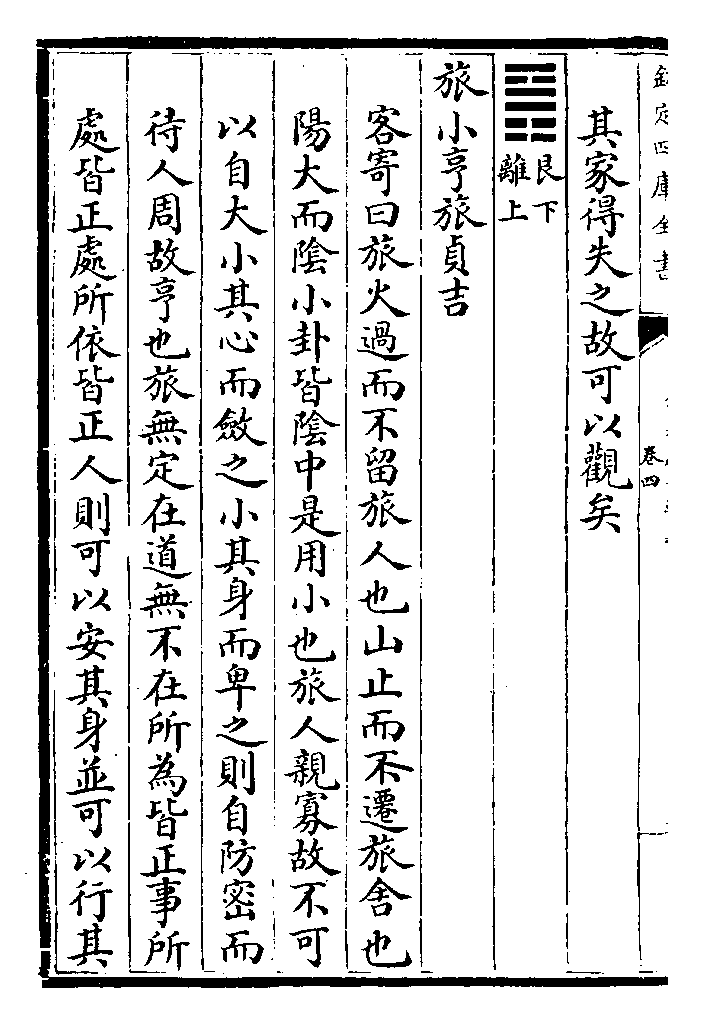 欽定四庫全書
卷四
其家得失之故可以觀矣
艮下
離上
旅小亨旅貞吉
客寄曰旅火過而不留旅人也山止而不遷旅舍也
陽大而陰小卦皆陰中是用小也旅人親寡故不可
以自大小其心而斂之小其身而卑之則自防密而
待人周故亨也旅無定在道無不在所為皆正事所
處皆正處所依皆正人則可以安其身並可以行其